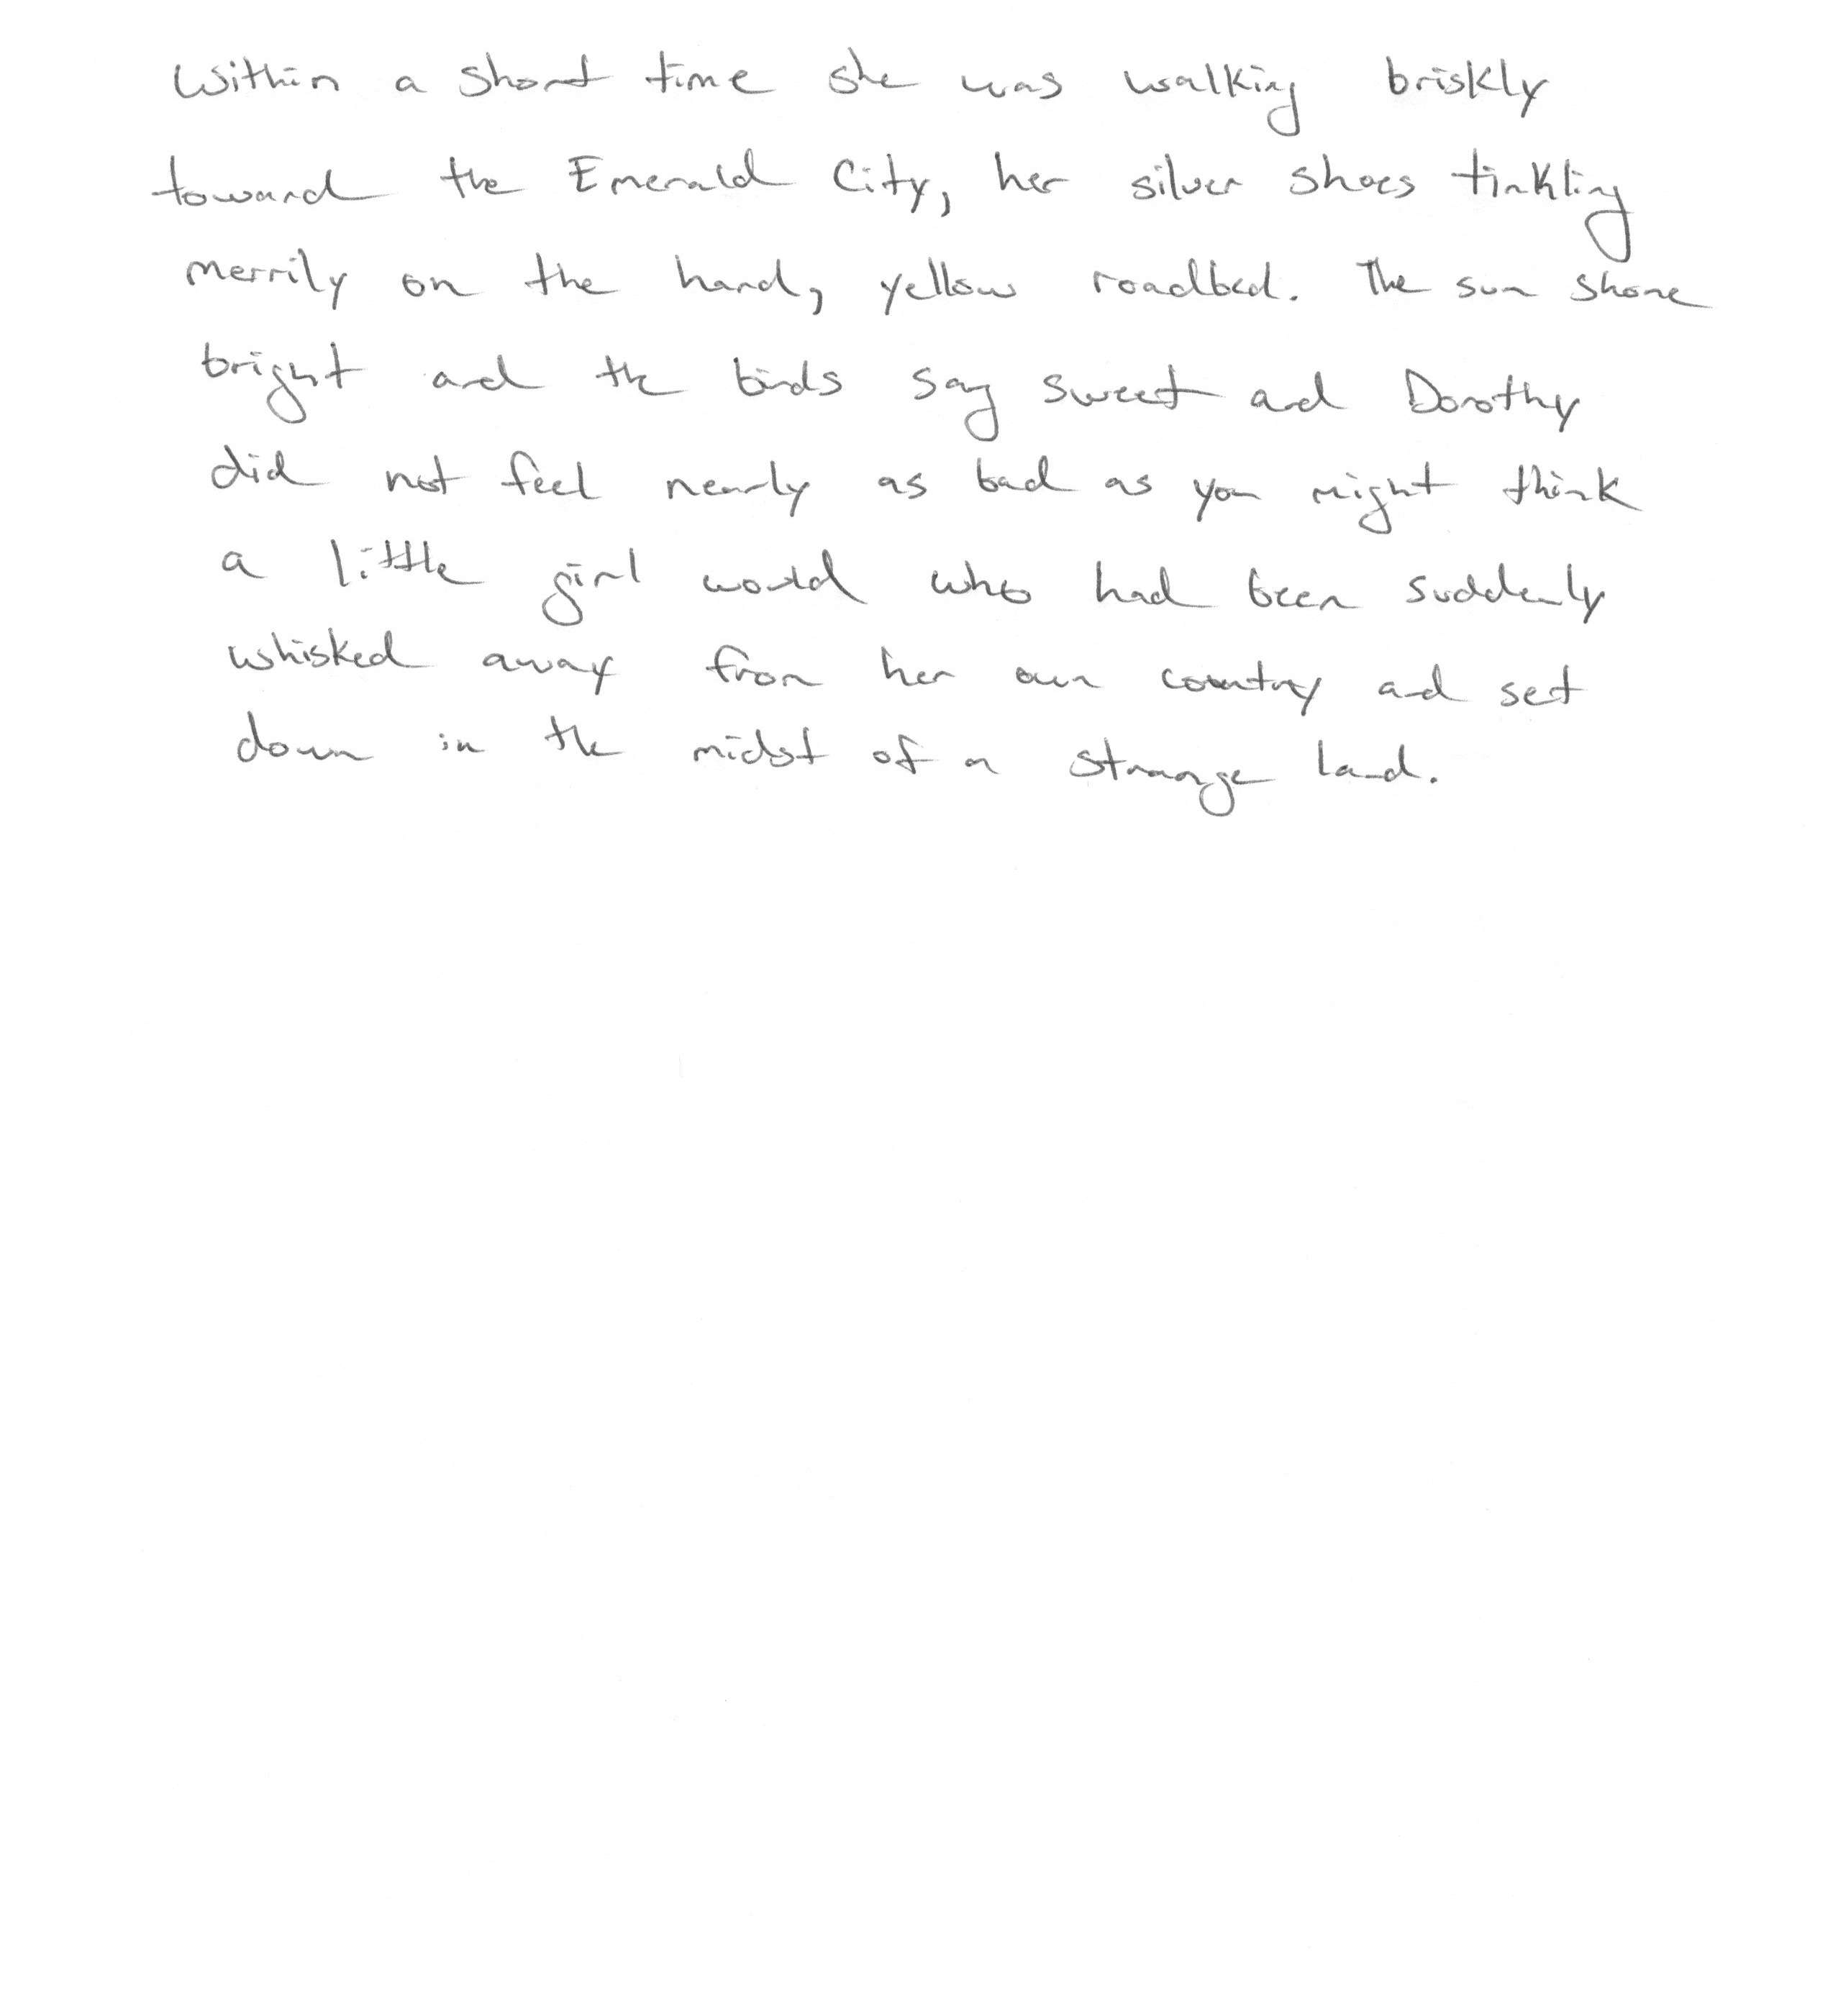 Within a short time she was walking briskly
toward the Emerald City, her silver shoes tinkling
merrily on the hard, yellow roadbed. The sun shone
bright and the birds sang sweet and Dorothy
did not feel nearly as bad as you might think
a little girl would who had been suddenly
whisked away from her own country and set
down in the midst of a strange land.